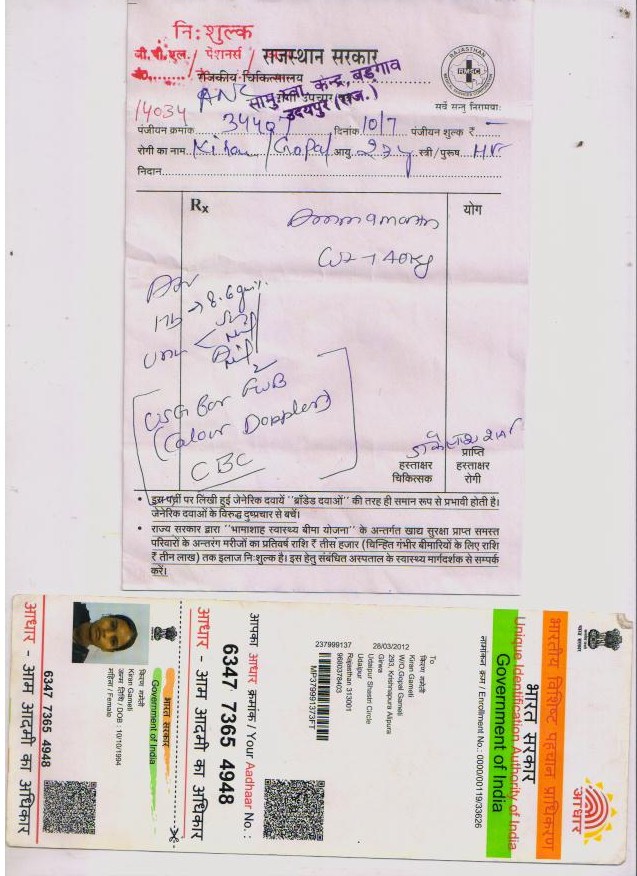 नि: शुल्क
जी.पी.एल. / पेंशनर्स /
राजस्थान सरकार
राजकीय चिकित्सालय
सामु. स्वा. केन्द्र, बड़गांव
उदयपुर (राज.)
RAJASTHAN
RMSC
सर्वे सन्तु निरामया:
ANC
14034
पंजीयन क्रमांक 34407 दिनांक 10/7 पंजीयन शुल्क ₹ -
रोगी का नाम Kiran / Gopal आयु 22y स्त्री / पुरूष
निदान
Rx
योग
wt → 40kg
Hb → 8.6 gm%
Urine
USG for FWB
(Colour Doppler)
CBC
हस्ताक्षर
चिकित्सक
प्राप्ति
हस्ताक्षर
रोगी
• इस पर्ची पर लिखी हुई जेनेरिक दवायें "ब्राँडेड दवाओं" की तरह ही समान रूप से प्रभावी होती है।
जेनेरिक दवाओं के विरुद्ध दुष्प्रचार से बचें।
• राज्य सरकार द्वारा "भामाशाह स्वास्थ्य बीमा योजना" के अन्तर्गत खाद्य सुरक्षा प्राप्त समस्त
परिवारों के अन्तरंग मरीजों का प्रतिवर्ष राशि ₹ तीस हजार (चिन्हित गंभीर बीमारियों के लिए राशि
₹ तीन लाख) तक इलाज निःशुल्क है। इस हेतु संबंधित अस्पताल के स्वास्थ्य मार्गदर्शक से सम्पर्क
करें।
आधार
भारतीय विशिष्ट पहचान प्राधिकरण
भारत सरकार
Unique Identification Authority of India
Government of India
नामांकन क्रम / Enrollment No.: 0000/00119/33626
To
किरण गमेती
Kiran Gameti
W/O Gopal Gameli
293, Krishnapura Alipura
Girwa
Udaipur Shastri Circle
Udaipur
Rajasthan 313001
9980378403
26/03/2012
237999137
MP379991373FT
आपका आधार क्रमांक / Your Aadhaar No. :
6347 7365 4948
आधार - आम आदमी का अधिकार
भारत सरकार
Government of India
किरण गमेती
Kiran Gameti
जन्म तिथि / DOB : 10/10/1994
महिला / Female
6347 7365 4948
आधार - आम आदमी का अधिकार